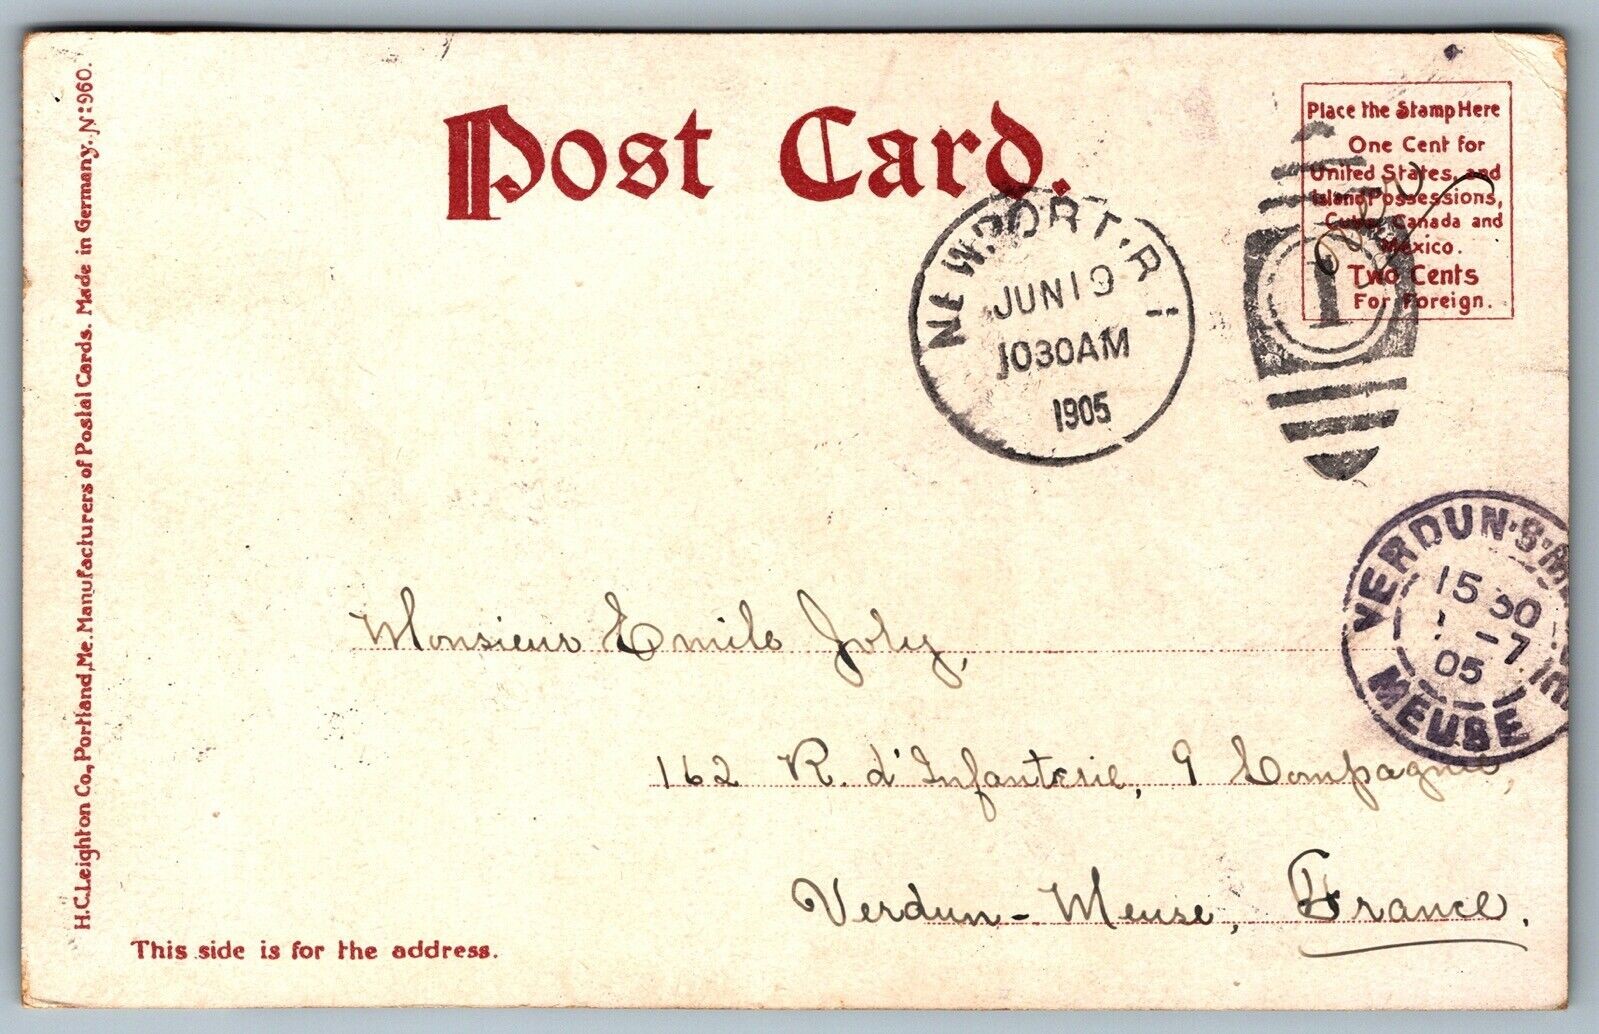 Post Card.
Place the Stamp Here
One Cent for
United States, and
Island Possessions,
Cuba, Canada and
Mexico.
Two Cents
For Foreign.
NEWPORT, R.I.
JUN 19
1030 AM
1905
1
VERDUN·S·M
15 30
-7
05
MEUSE
Monsieur Emile Joly,
162 R. d'Infanterie, 9 Compagnie,
Verdun - Meuse, France.
This side is for the address.
H.C. Leighton Co., Portland, Me. Manufacturers of Postal Cards. Made in Germany. No 960.